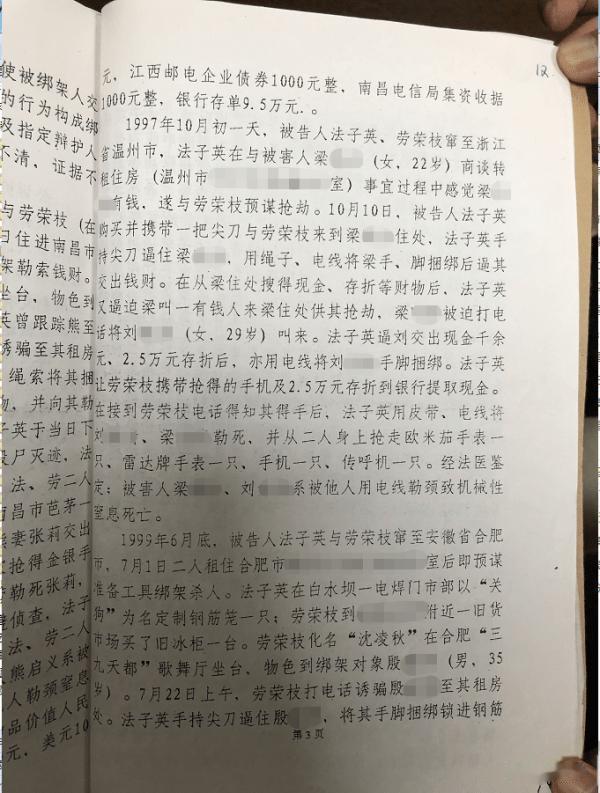 12
使被绑架人交
的行为构成绑
及指定辩护人
不清，证据不
与劳荣枝（在
日住进南昌市
架勒索钱财。
坐台，物色到
英曾跟踪熊至
诱骗至其租房
绳索将其捆
物，并向其勒
子英于当日下
尸灭迹，法
法、劳二人
南昌市芭茅一
妻张莉交出
抢得金银手
勒死张莉，
侦查，法子
法、劳二人
熊启义系被
人勒颈窒息
品价值人民
元，美元10
元，江西邮电企业债券1000元整，南昌电信局集资收据
1000元整，银行存单9.5万元.。
1997年10月初一天，被告人法子英、劳荣枝窜至浙江
省温州市，法子英在与被害人梁（女，22岁）商谈转
租住房（温州市室）事宜过程中感觉梁
有钱，遂与劳荣枝预谋抢劫。10月10日，被告人法子英
购买并携带一把尖刀与劳荣枝来到梁住处，法子英手
持尖刀逼住梁，用绳子、电线将梁手、脚捆绑后逼其
交出钱财。在从梁住处搜得现金、存折等财物后，法子英
又逼迫梁叫一有钱人来梁住处供其抢劫，梁被迫打电
话将刘（女，29岁）叫来。法子英逼刘交出现金千余
元、2.5万元存折后，亦用电线将刘手脚捆绑。法子英
让劳荣枝携带抢得的手机及2.5万元存折到银行提取现金。
在接到劳荣枝电话得知其得手后，法子英用皮带、电线将
刘、梁勒死，并从二人身上抢走欧米茄手表一
只、雷达牌手表一只、手机一只、传呼机一只。经法医鉴
定：被害人梁、刘系被他人用电线勒颈致机械性
窒息死亡。
1999年6月底，被告人法子英与劳荣枝窜至安徽省合肥
市，7月1日二人租住合肥市室后即预谋
准备工具绑架杀人。法子英在白水坝一电焊门市部以“关
狗”为名定制钢筋笼一只；劳荣枝到附近一旧货
市场买了旧冰柜一台。劳荣枝化名“沈凌秋”在合肥“三
九天都”歌舞厅坐台，物色到绑架对象殷（男，35
岁）。7月22日上午，劳荣枝打电话诱骗殷至其租房
处。法子英手持尖刀逼住殷，将其手脚捆绑锁进钢筋
第3页